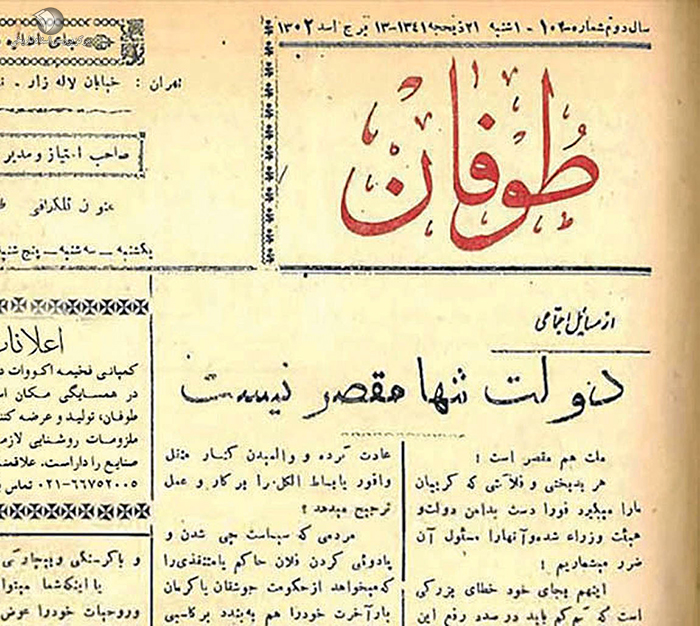 سال دوم شماره ۱۰۲ - ۱شنبه ۲۱ ذیحجه ۱۳۴۱-۱۳ برج اسد ۱۳۰۲
طوفان
طهران : خیابان لاله زار .
صاحب امتیاز و مدیر
عنوان تلگرافی
یکشنبه _ سه شنبه _ پنج شنبه
از مسائل اجتماعی
دولت تنها مقصر نیست
ملت هم مقصر است !
هر بدبختی و فلاکتی که گریبان
مارا میگیرد فورا دست بدامن دولت و
هیئت وزراء شده و آنهارا مسئول آن
ضرر میشماریم !
اینهم بجای خود خطای بزرگی
است که کم کم باید در صدد رفع این
عادت کرده و والمیدن کنار منقل
وافور یا بساط الکل را بر کار و عمل
ترجیح میدهد ؟
مردمی که سیاست چی شدن و
پادوئی کردن فلان حاکم یا متنفذی را
که میخواهد از حکومت جوشقان بکرمان
بار آخرت خودرا هم به بندد بر کاسبی
اعلانات
کمپانی فخیمه اکووات د
در همسایگی مکان اس
طوفان، تولید و عرضه کنند
ملزومات روشنایی لازم
صنایع را داراست. علاقمند
تماس ۰۲۱-۶۶۷۵۲۰۰۵
و با گرسنگی و بیچارگی
با اینکه شما میتوا
وروحیات خودرا عوض